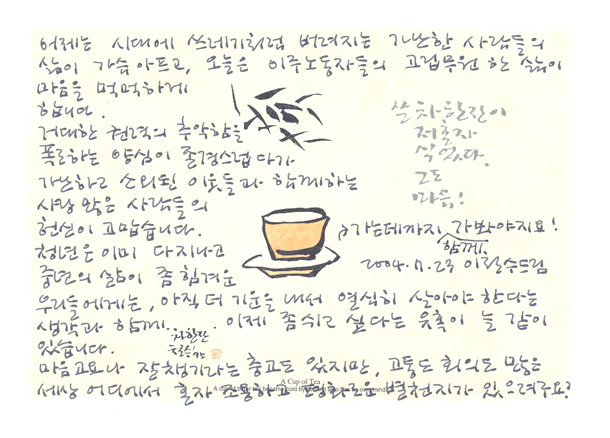 어제는 시대에 쓰레기처럼 버려지는 가난한 사람들의
삶이 가슴 아프고, 오늘은 이주노동자들의 고립무원 한 삶이
마음을 먹먹하게
합니다.
거대한 권력의 추악함을
폭로하는 양심이 존경스럽다가
가난하고 소외된 이웃들과 함께하는
사랑 많은 사람들의
헌신이 고맙습니다.
청년은 이미 다 지나고
중년의 삶이 좀 힘겨운
우리들에게는, 아직 더 기운을 내서 열심히 살아야 한다는
생각과 함께.... 이제 좀 쉬고 싶다는 유혹이 늘 같이
있습니다.
마음고요나 잘 챙기라는 충고도 있지만, 고통도 회의도 많은
세상 어디에서 혼자 조용하고 평화로운 별천지가 있으려구요?
쓴 차 한잔이
저 혼자
식었다.
그도
마음!
가는데까지 가봐야지요!
함께.
2004. 7. 23 이철수드림
차 한잔
A Cup of Tea